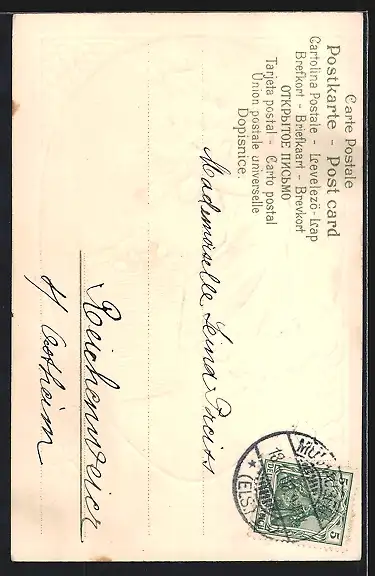 Carte Postale
Postkarte - Post card
Cartolina Postale - Levelező-Lap
Brefkort - Briefkaart - Brevkort
ОТКРЫТОЕ ПИСЬМО
Tarjeta postal - Carto postal
Union postale universelle
Dopisnice.
Mademoiselle
Reichenweier
b/ Ostheim
(ELS.)
5
5